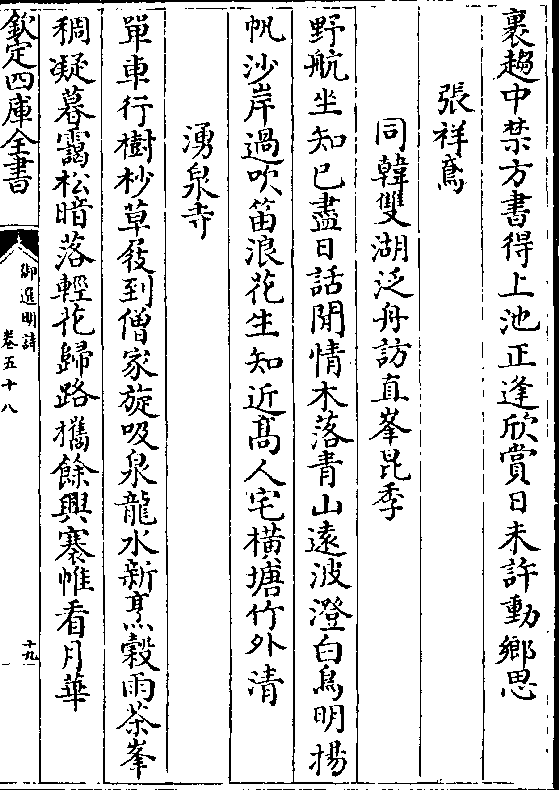 裹趨中禁方書得上池正逢欣賞日未許動鄉思
張祥鳶
同韓雙湖泛舟訪直峯昆季
野航坐知已盡日話閒情木落青山遠波澄白鳥明揚
帆沙岸過吹笛浪花生知近髙人宅橫塘竹外清
湧泉寺
單車行樹杪草屐到僧家旋吸泉龍水新烹穀雨茶峯
稠凝暮靄松暗落輕花歸路攜餘興褰帷看月華
欽定四庫全書
御選明詩
卷五十八
十九